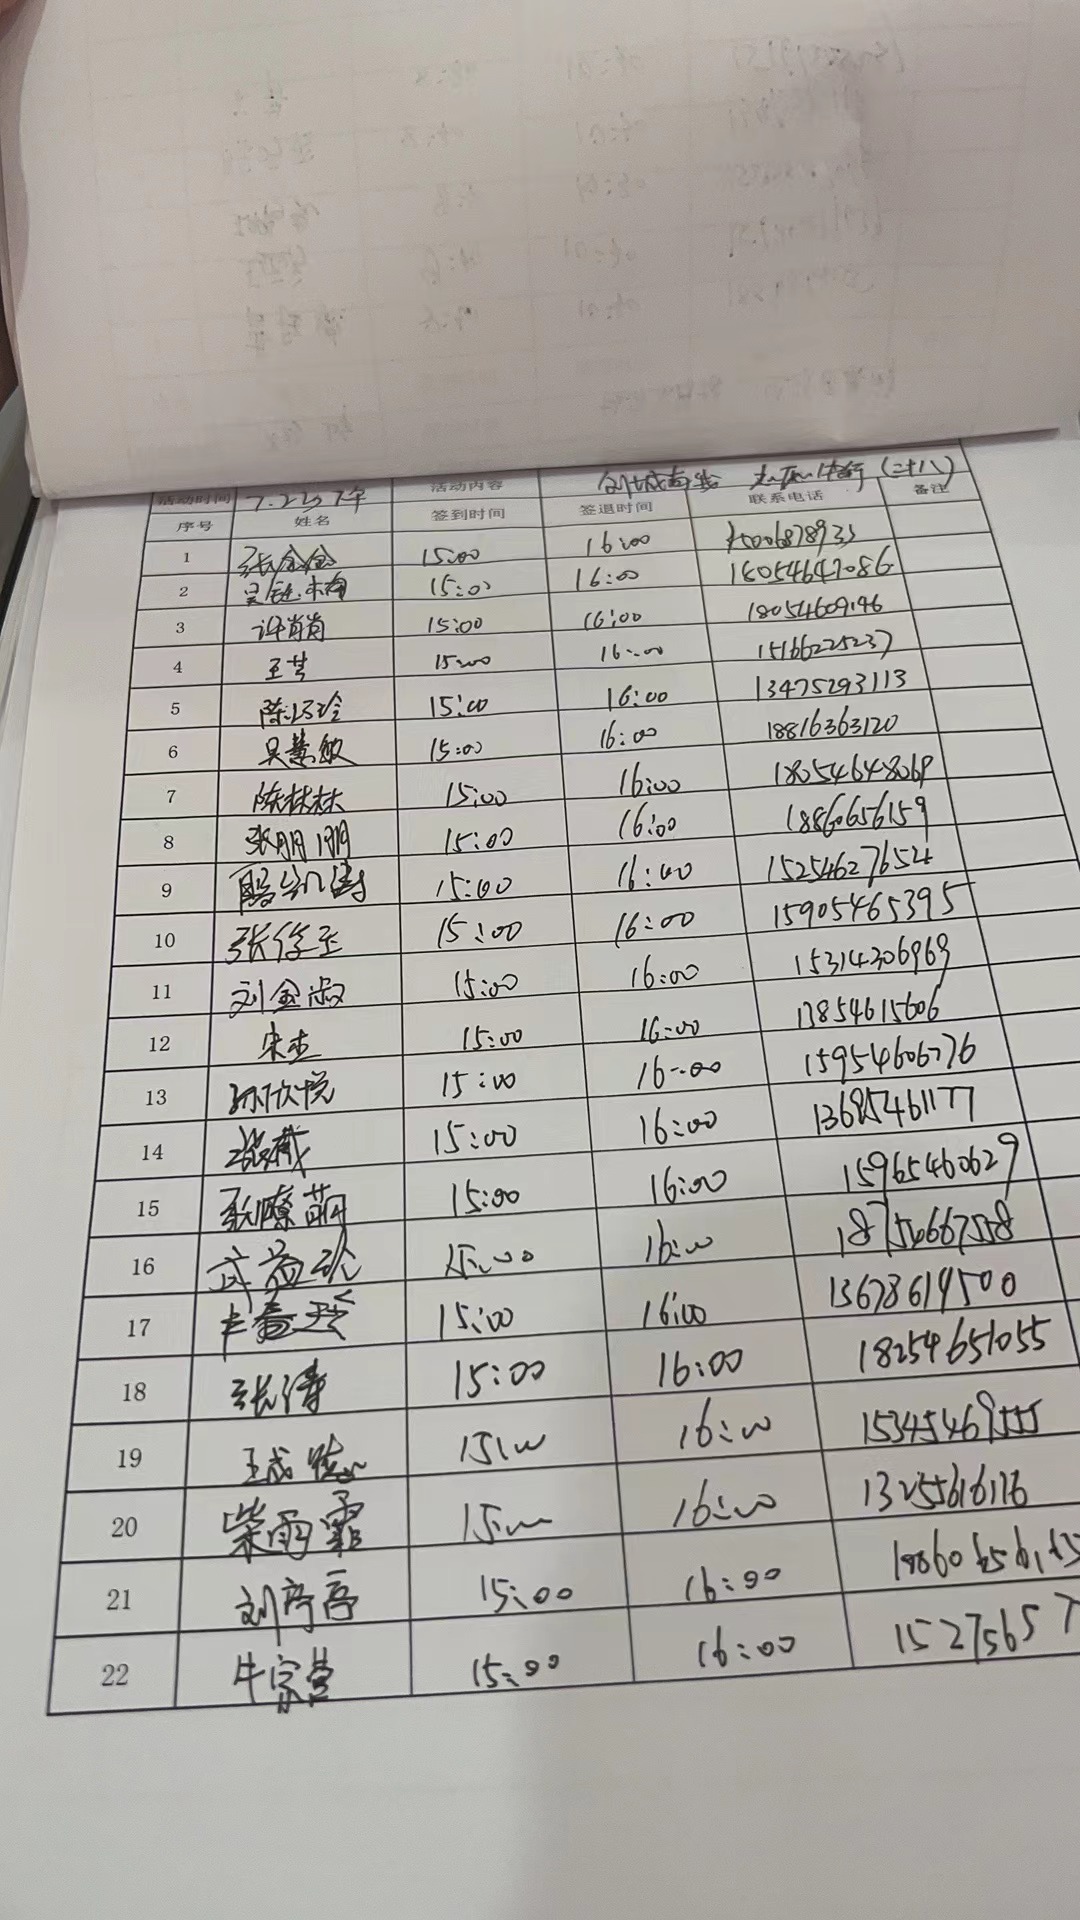 活动时间 7.23下午 活动内容
序号 姓名 签到时间 签退时间 联系电话 备注
1 张金金 15:00 16:00 15006878933
2 15:00 16:00 18054647086
3 许肖肖 15:00 16:00 18054609146
4 王芸 15:00 16:00 15166225237
5 陈巧玲 15:00 16:00 13475293113
6 吴慧敏 15:00 16:00 18816363120
7 陈林林 15:00 16:00 18054648069
8 张朋朋 15:00 16:00 18860656159
9 15:00 16:00 15254627654
10 张俊玉 15:00 16:00 15905465395
11 刘金淑 15:00 16:00 15314306969
12 宋杰 15:00 16:00 13854615606
13 孙欣悦 15:00 16:00 15954606776
14 15:00 16:00 13685461177
15 15:00 16:00 15965460629
16 武益玲 15:00 16:00 18754667558
17 15:00 16:00 13678619500
18 张涛 15:00 16:00 18254651055
19 15:00 16:00 15345469555
20 柴雨霜 15:00 16:00 13255616176
21 刘亭亭 15:00 16:00
22 牛宗营 15:00 16:00 15275657